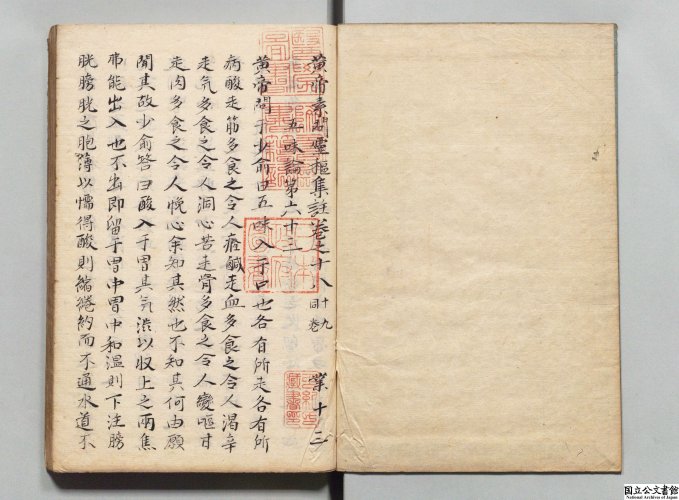 黄帝素問霊樞集註卷之十八 十九同卷 業十三
五味論第六十三
黄帝問于少俞曰五味入于口也各有所走各有所
病酸走筋多食之令人癃鹹走血多食之令人渴辛
走气多食之令人洞心苦走骨多食之令人變嘔甘
走肉多食之令人悗心余知其然也不知其何由願
聞其故少俞答曰酸入于胃其气渋以収上之兩焦
弗能出入也不出即留于胃中胃中和温則下注膀
胱膀胱之胞薄以懦得酸則縮綣約而不通水道不
国立公文書館
National Archives of Japan